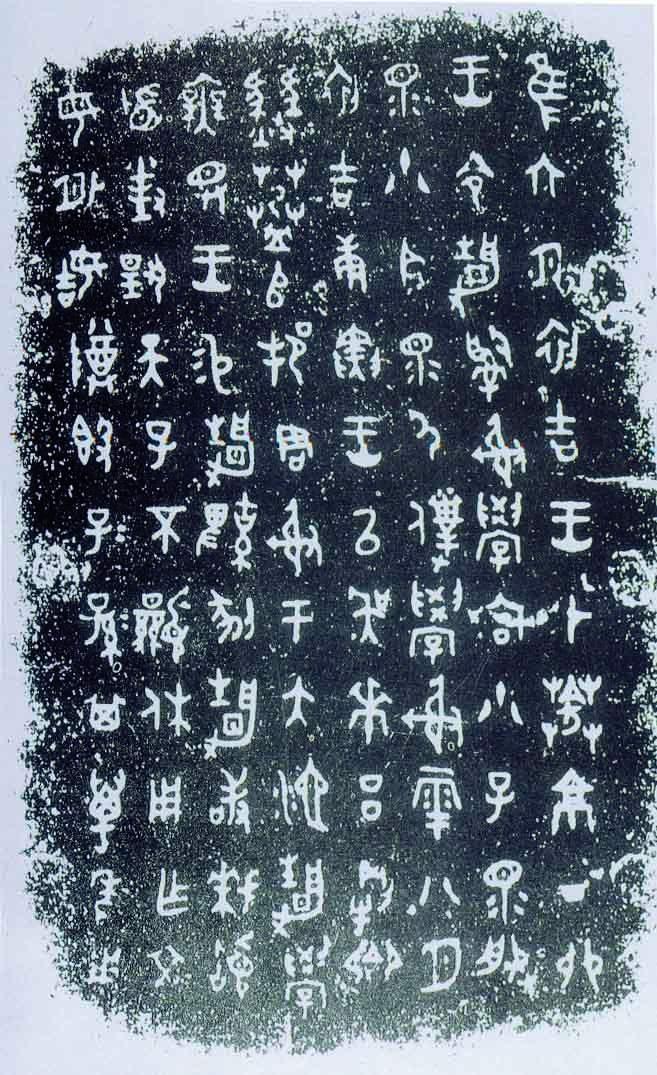 隹六月初吉王才𦱤京丁卯
王令靜𤔲射學宮小子眔服
眔小臣眔尸僕學射雩八月
初吉庚寅王以吳𠦪呂犅卿
豳𦯄𠂤邦周射于大池靜學
無王易靜鞞剢靜敢拜𩒨
首對揚天子不顯休用乍文
母外姞𢍜𣪘子子孫孫其萬年用